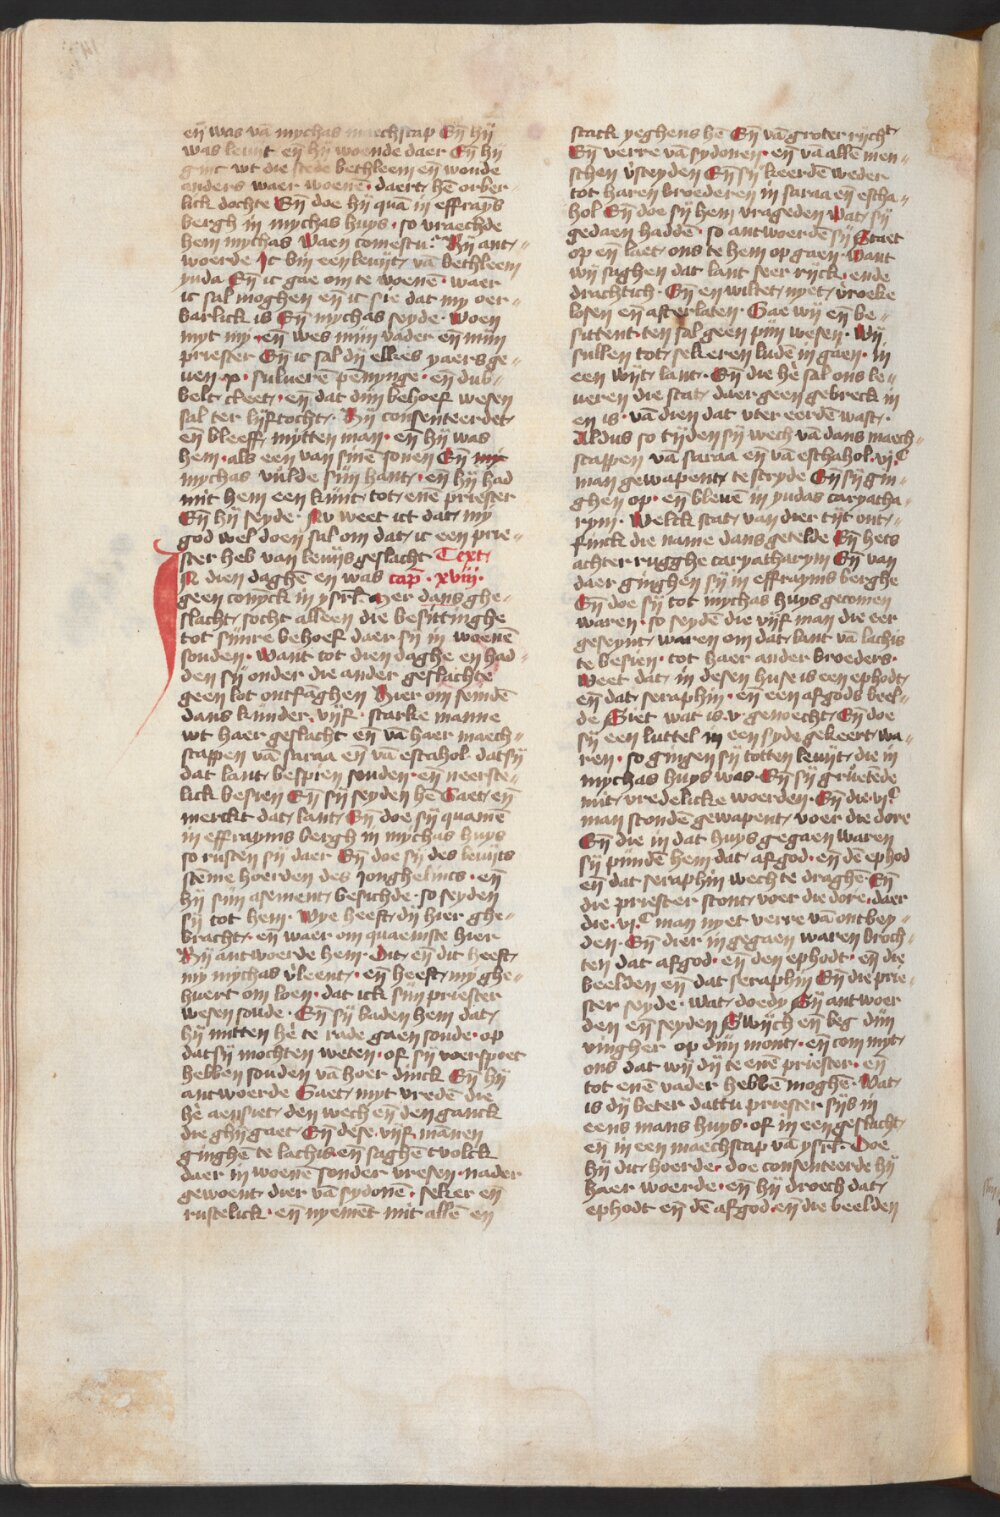 eñ was vā mychas maechscap Eñ hij
was leuijt eñ hij woende daer Eñ hij
ginc wt die stede bethleem eñ woude
anders waer woenē · daert hē orber〃
lick dochte Eñ doe hij quā in effrays
bergh in mychas huys · so vraechde
hem mychas Waen comestu? Hij ant〃
woerde Ic bin een leuijt vā bethleem
yuda Eñ ic gae om te woenē · waer
ic sal moghen eñ ic sie dat my oer〃
barlick is Eñ mychas seyde · Woen
myt my · eñ wes mijn vader eñ mijn
priester Eñ ic sal dij elkes yaers ge〃
uen ·x· suluerē pēnynge · eñ dub〃
belt cleet · eñ dat dijn behoef wesen
sal ter lijftocht · Hij consenteerdet
eñ bleeff mytten man · eñ hij was
hem · als een van sinē sonen Eñ my
mychas vulde sijn hant · eñ hij had
mit hem een kijnt tot enē priester
Eñ hij seyde · Nv weet ict dat my
god wel doen sal om dat ic een prie〃
ster heb van leuijs geslacht Text
IN dien daghē en was cap̄ · xviij ·
geen conyck in ysrl̄ · Mer dans ghe〃
slacht socht alleen die besittinghe
tot sijnre behoef daer sij in woenē
souden · Want tot dien daghe en had〃
den sij onder die ander geslachte
geen lot ontfāghen Hier om seindē
dans kijnder vijf · starke manne
wt haer geslacht eñ vā haer maech〃
scappen vā saraa eñ vā estahol · dat sij
dat lant bespien souden · eñ neerste〃
lick besien Eñ sij seyden hē Gaet eñ
merckt dat lant Eñ doe sij quamē
in effrayms bergh in mychas huys
so rusten sij daer Eñ doe sij des leuijts
stēme hoerden des Jonghelincs · eñ
hij sijn asement besichde · so seyden
sij tot hem · Wye heeft dij hier ghe〃
bracht · eñ waer om quaemste hier
Hij antwoerde hem · Dit eñ dit heeft
my mychas v̄leent · eñ heeft my ghe〃
huert om loen · dat ick sijn priester
wesen soude · Eñ sij baden hem dat
hij mitten hē te rade gaen soude · op
dat sij mochten weten · of sij voerspoet
hebben souden vā hoer dinck Eñ hij
antwoerde Gaet myt vreden die
hē aensiet den wech eñ den ganck
die ghij gaet · Eñ dese vijf mānen
ginghē te lachis · eñ saghē tvolck
daer in woenē sonder vresen · nader
gewoent dier vā sydonē · seker eñ
rustelick · eñ nyemēt mit allē en
stack yeghens hē Eñ vā groter rijcht
Eñ verre vā sydonen · eñ vā allē men〃
schen v̄steyden Eñ sij keerdē weder
tot haren broederen in saraa eñ escha〃
hol Eñ doe sij hem vrageden wat sij
gedaen haddē · so antwoerdē sij Staet
op eñ laet ons te hem op gaen · Want
wij saghen dat lant seer rijck · ende
drachtich · Eñ en wiltet nyet vroeke
losen eñ afterlaten · Gae wij eñ be〃
sittent ten sal geen pijn wesen · Wij
sullen tot sekeren ludē in gaen · in
een wijt lant · Eñ die hē sal ons le〃
ueren die stat daer geen gebreck in
en is · vā dien dat vter eerdē wast ·
Aldus so tijden sij wech vā dans maech〃
scappen vā saraa eñ vā eschahol · vjᶜ
man gewapent te stryde Eñ sij gin〃
ghen op · eñ bleuē in yudas caryatha〃
rym · Welck stat van dier tijt ont〃
finck die name dans getelde Eñ hets
achter rugghe caryatharym Eñ van
daer ginghen sij in effrayms berghe
Eñ doe sij tot mychas huys gecomen
waren · so seydē die vijf man die eer
geseynt waren om dat lant vā lachis
te besien · tot haer ander broeders ·
Weet dat in desen huse is een ephodt
eñ dat seraphin · eñ een afgods beel〃
de Siet wat is · v · genoecht Eñ doe
sij een luttel in een syde gekeert wa〃
ren · so gingen sij totten leuijt die in
mychas huys was · Eñ sij gruetēde
mit vredelicke woerden · Eñ die vjᶜ
man stondē gewapent voer die dore
Eñ die in dat huys gegaen waren
sij pijndē hem dat afgod · eñ dē ephod
eñ dat seraphin wech te draghē Eñ
die priester stont voer die dore · daer
die · vjᶜ man nyet verre vā ontbey〃
den · Eñ dier in gegaen waren broch〃
ten dat afgod · eñ den ephodt · eñ die
beelden eñ dat seraphin Eñ die prie〃
ster seyde · Wat doedy Sij antwoer
den eñ seyden Swijch eñ leg dijn
vingher op dijn mont · eñ com myt
ons dat wij dij te enē priester · eñ
tot enē vader hebbē moghē · Wat
is dij beter dattu priester sijs in
eens mans huys · of in een geslacht
eñ in een maechscap vā ysrl̄ · Doe
hij dit hoerde · doe consenteerde hij
haer woerde · eñ hij droech dat
ephodt eñ dē afgod · eñ die beelden